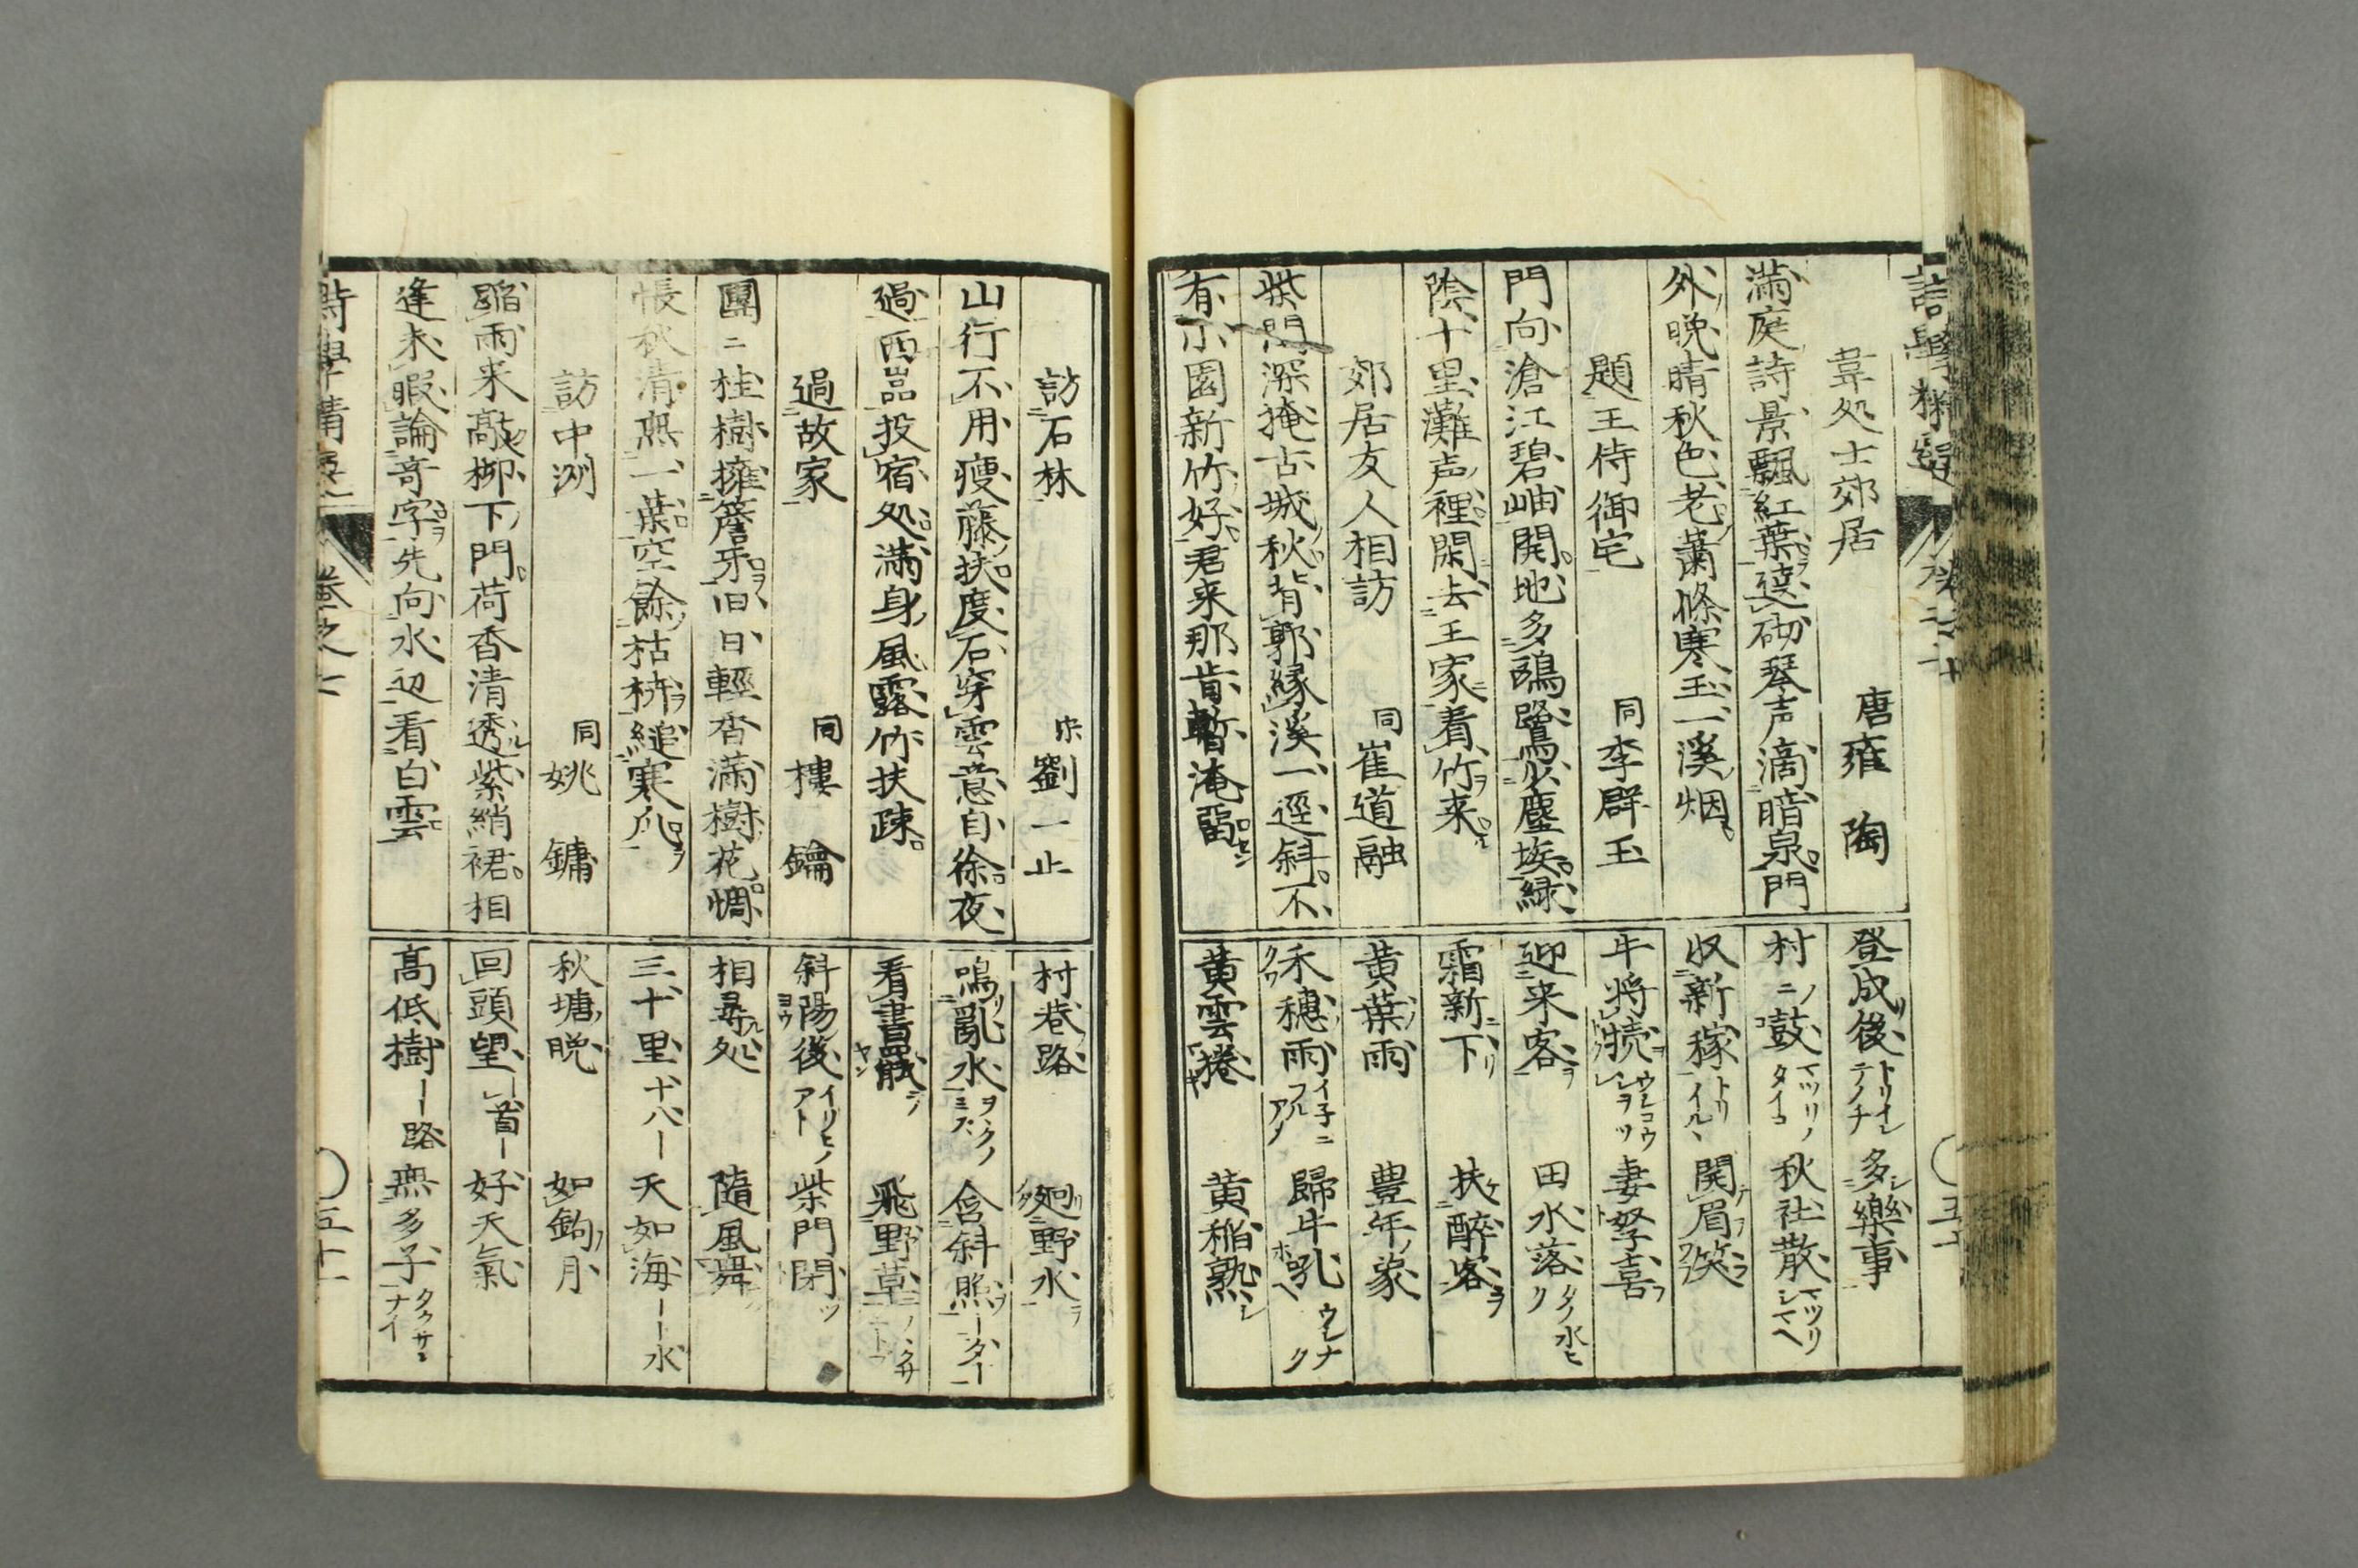 韋処士郊居 唐雍陶
満庭詩景飄紅葉遶砌琴声滴暗泉門
外晩晴秋色老蕭條寒玉一溪烟
題王侍御宅 同李群玉
門向滄江碧岫開地多鷗鷺少塵埃緑
陰十里灘声裡閑去王家看竹来
郊居友人相訪 同崔道融
柴門深掩古城秋背郭縁溪一逕斜不
有小園新竹好君来那肯暫淹留
登成後トリイレテノチ 多樂事
村ニノ鼓マツリノタイコ 秋社散マツリシマヘ
収新稼トリイルヽ 開眉笑
牛将犢 妻孥喜
迎来客 田水落
霜新下 扶醉客
黄葉雨 豊年象
禾穗雨 歸牛吼
黄雲捲 黄稲熟
訪石林 宋劉一止
山行不用痩藤扶度石穿雲意自徐夜
過西嵓投宿処満身風露竹扶疎
過故家 同樓鑰
團ニ桂樹擁簷牙旧日輕香満樹花惆
悵秋清無一葉空餘枯枿縋寒瓜
訪中洲 同姚鏞
蹈雨来敲柳下門荷香清透紫綃裙相
逢未暇論奇字先向水辺看白雲
村巷路 廻野水
鳴亂水 含斜照
看書罷 飛野草
斜陽後イリヒノアト 柴門閉
相尋処 隨風舞
三十里十八― 天如海――水
秋塘晩 如鉤月
回頭望―首― 好天氣
高低樹――路 無多子タクサンナイ
巻之七
五十一